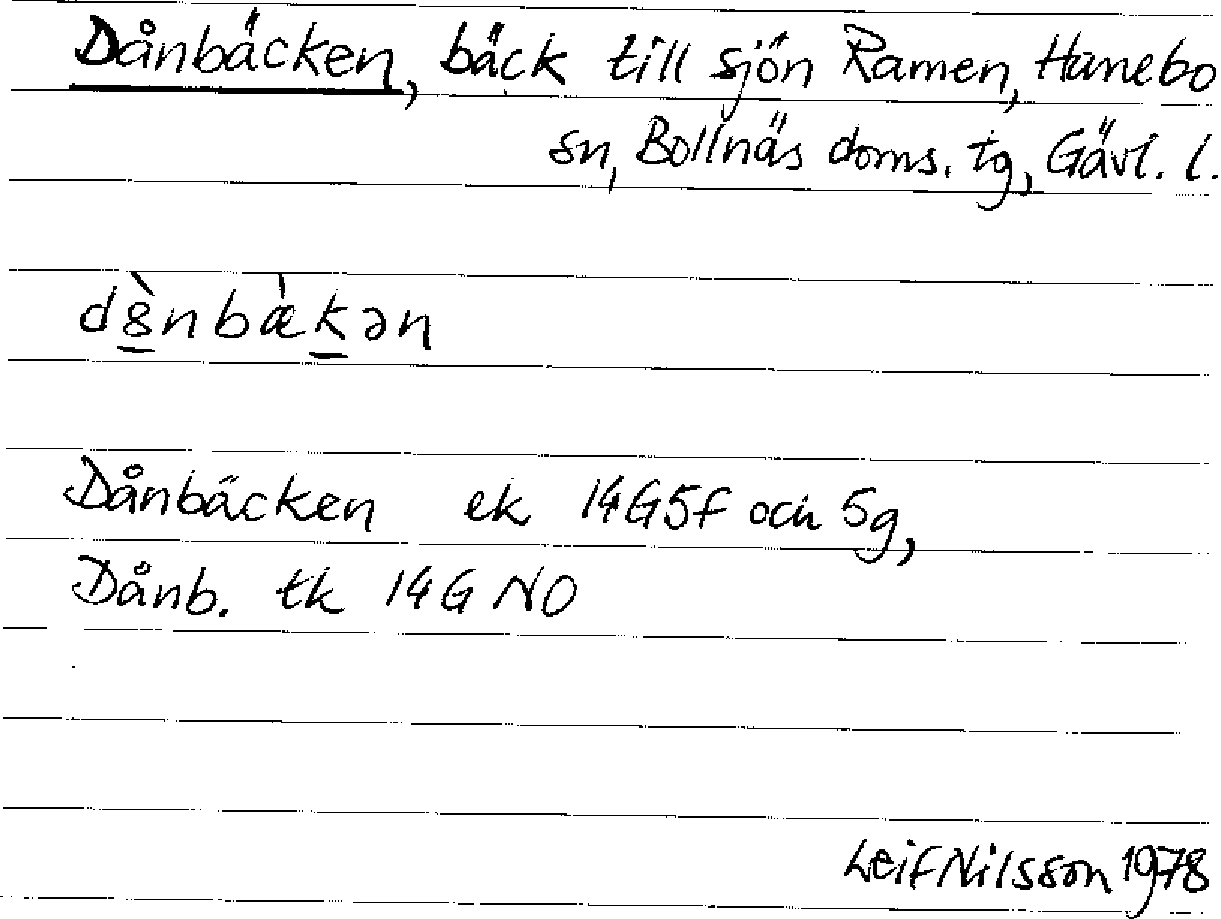 Dånbäcken, bäck till sjön Ramen, Hanebo
sn, Bollnäs doms. tg, Gävl. l.
dȣ̠̀nbæ̀k̠ən
Dånbäcken ek 14G5f och 5g,
Dånb. tk 14G NO
Leif Nilsson 1978